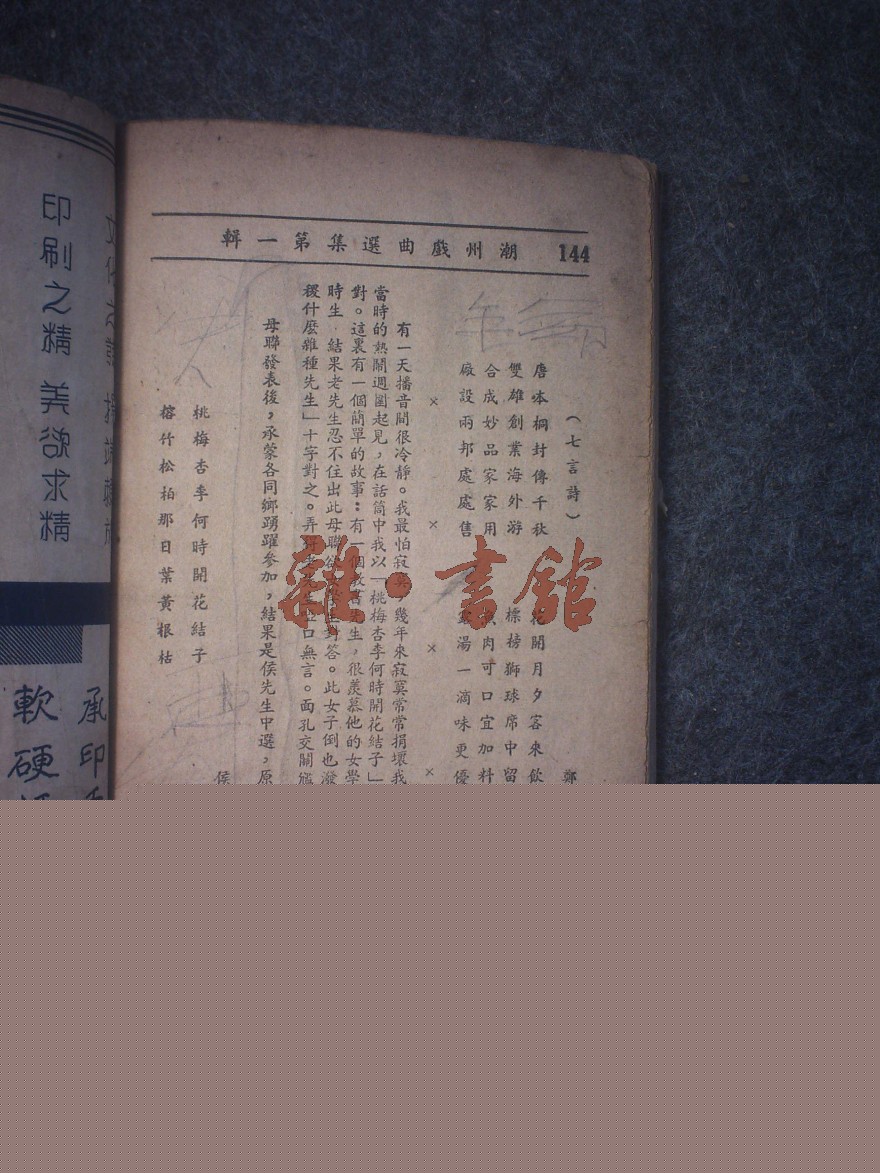 144 潮州戲曲選集第一輯
（七言詩） 鄭
唐本桐封傳千秋 花開月夕客來飲
雙雄創業海外游 標榜獅球席中留
合成妙品家家用 肉可口宜加料
廠設兩邦處處售 湯一滴味更優
× × × ×
有一天播音間很冷靜。我最怕寂寞，幾年來寂寞常常損壞我
當時的熱鬧週圍起見，在話筒中我以「桃梅杏李何時開花結子」
對。這裏有一個簡單的故事：有一個教書先生，很羨慕他的女學
時生．結果老先生忍不住出此母聯欲 對答。此女子倒也潑
稷什麽雜種先生」十字對之。弄得老先生啞口無言。面孔交關尷
母聯發表後，承蒙各同鄉踴躍參加，結果是侯先生中選，原
侯
桃梅杏李何時開花結子
榕竹松柏那日葉黃根枯
雜·書館
文化之 揚
印刷之精 美欲求精
承印
軟硬